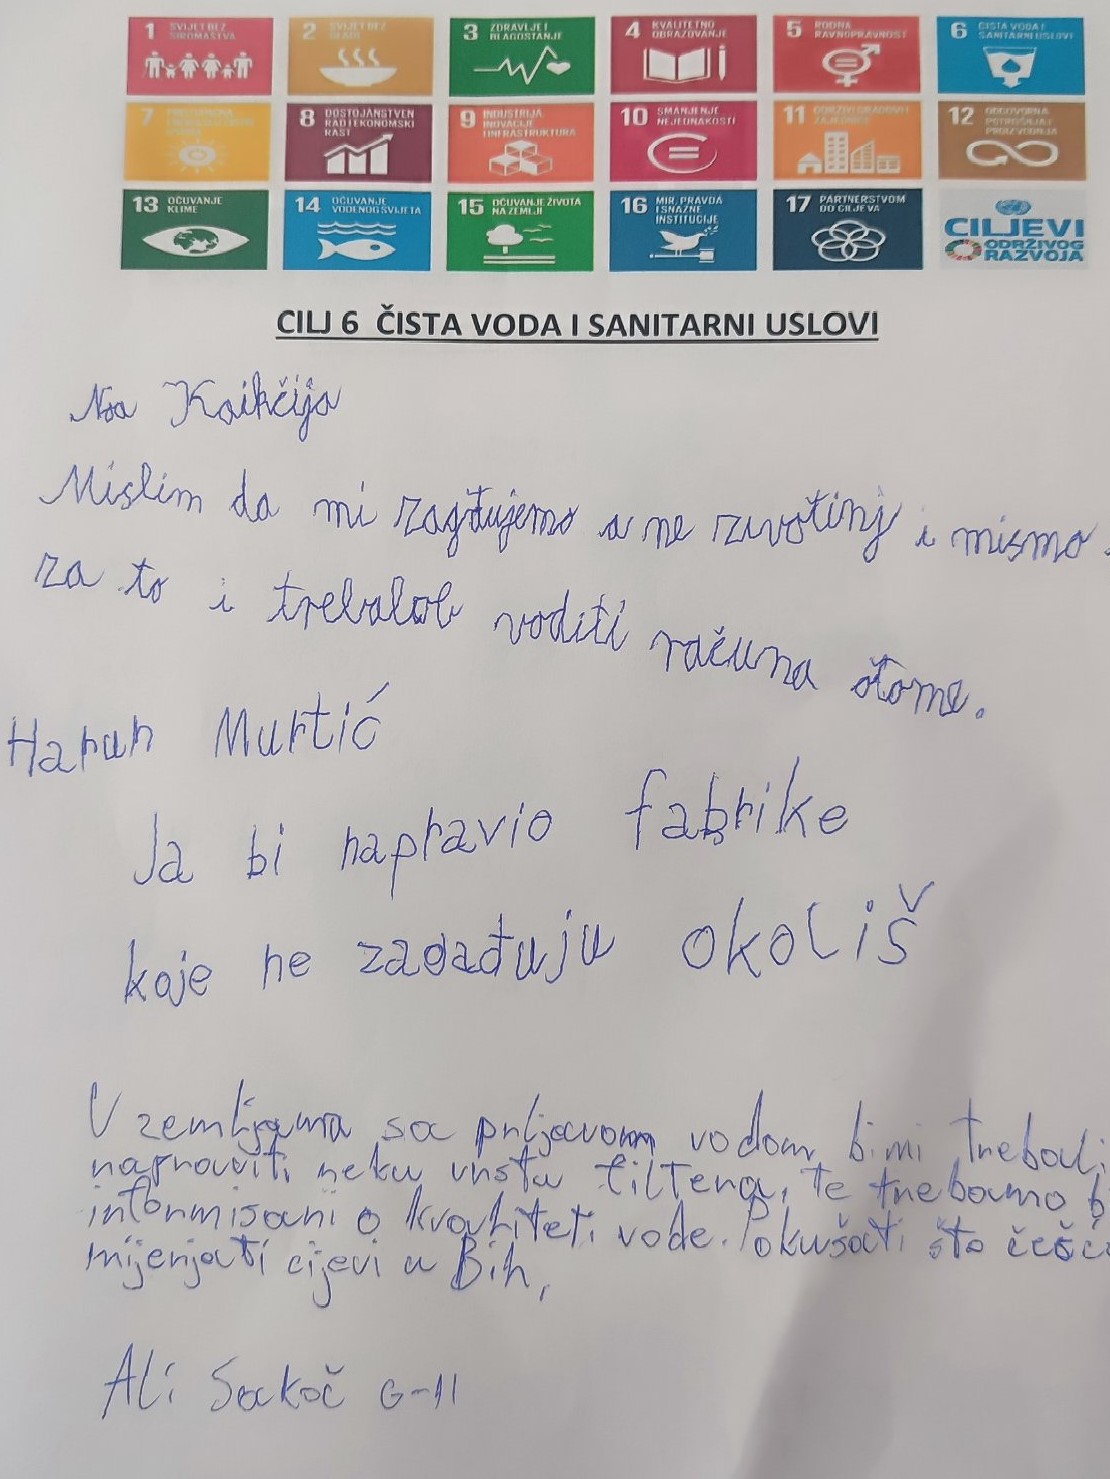 1 SVIJET BEZ SIROMAŠTVA
2 SVIJET BEZ GLADI
3 ZDRAVLJE I BLAGOSTANJE
4 KVALITETNO OBRAZOVANJE
5 RODNA RAVNOPRAVNOST
6 ČISTA VODA I SANITARNI USLOVI
7
8 DOSTOJANSTVEN RAD I EKONOMSKI RAST
9 INDUSTRIJA, INOVACIJE I INFRASTRUKTURA
10 SMANJENJE NEJEDNAKOSTI
11 ODRŽIVI GRADOVI I ZAJEDNICE
12 ODGOVORNA POTROŠNJA I PROIZVODNJA
13 OČUVANJE KLIME
14 OČUVANJE VODENOG SVIJETA
15 OČUVANJE ŽIVOTA NA ZEMLJI
16 MIR, PRAVDA I SNAŽNE INSTITUCIJE
17 PARTNERSTVOM DO CILJEVA
CILJEVI ODRŽIVOG RAZVOJA
CILJ 6 ČISTA VODA I SANITARNI USLOVI
Kaikčija
Mislim da mi zagđujemo a ne zivotinj i mismo
za to i trebalob voditi računa otome.
Harun Murtić
Ja bi napravio fabrike
koje ne zagađuju okoliš
U zemljama sa prljavom vodom bi mi trebali
napraviti neku vrstu filtera, te trebamo b
informisani o kvaliteti vode. Pokušati što češće
mijenjati cijevi u Bih,
Ali Sakoč 6-11